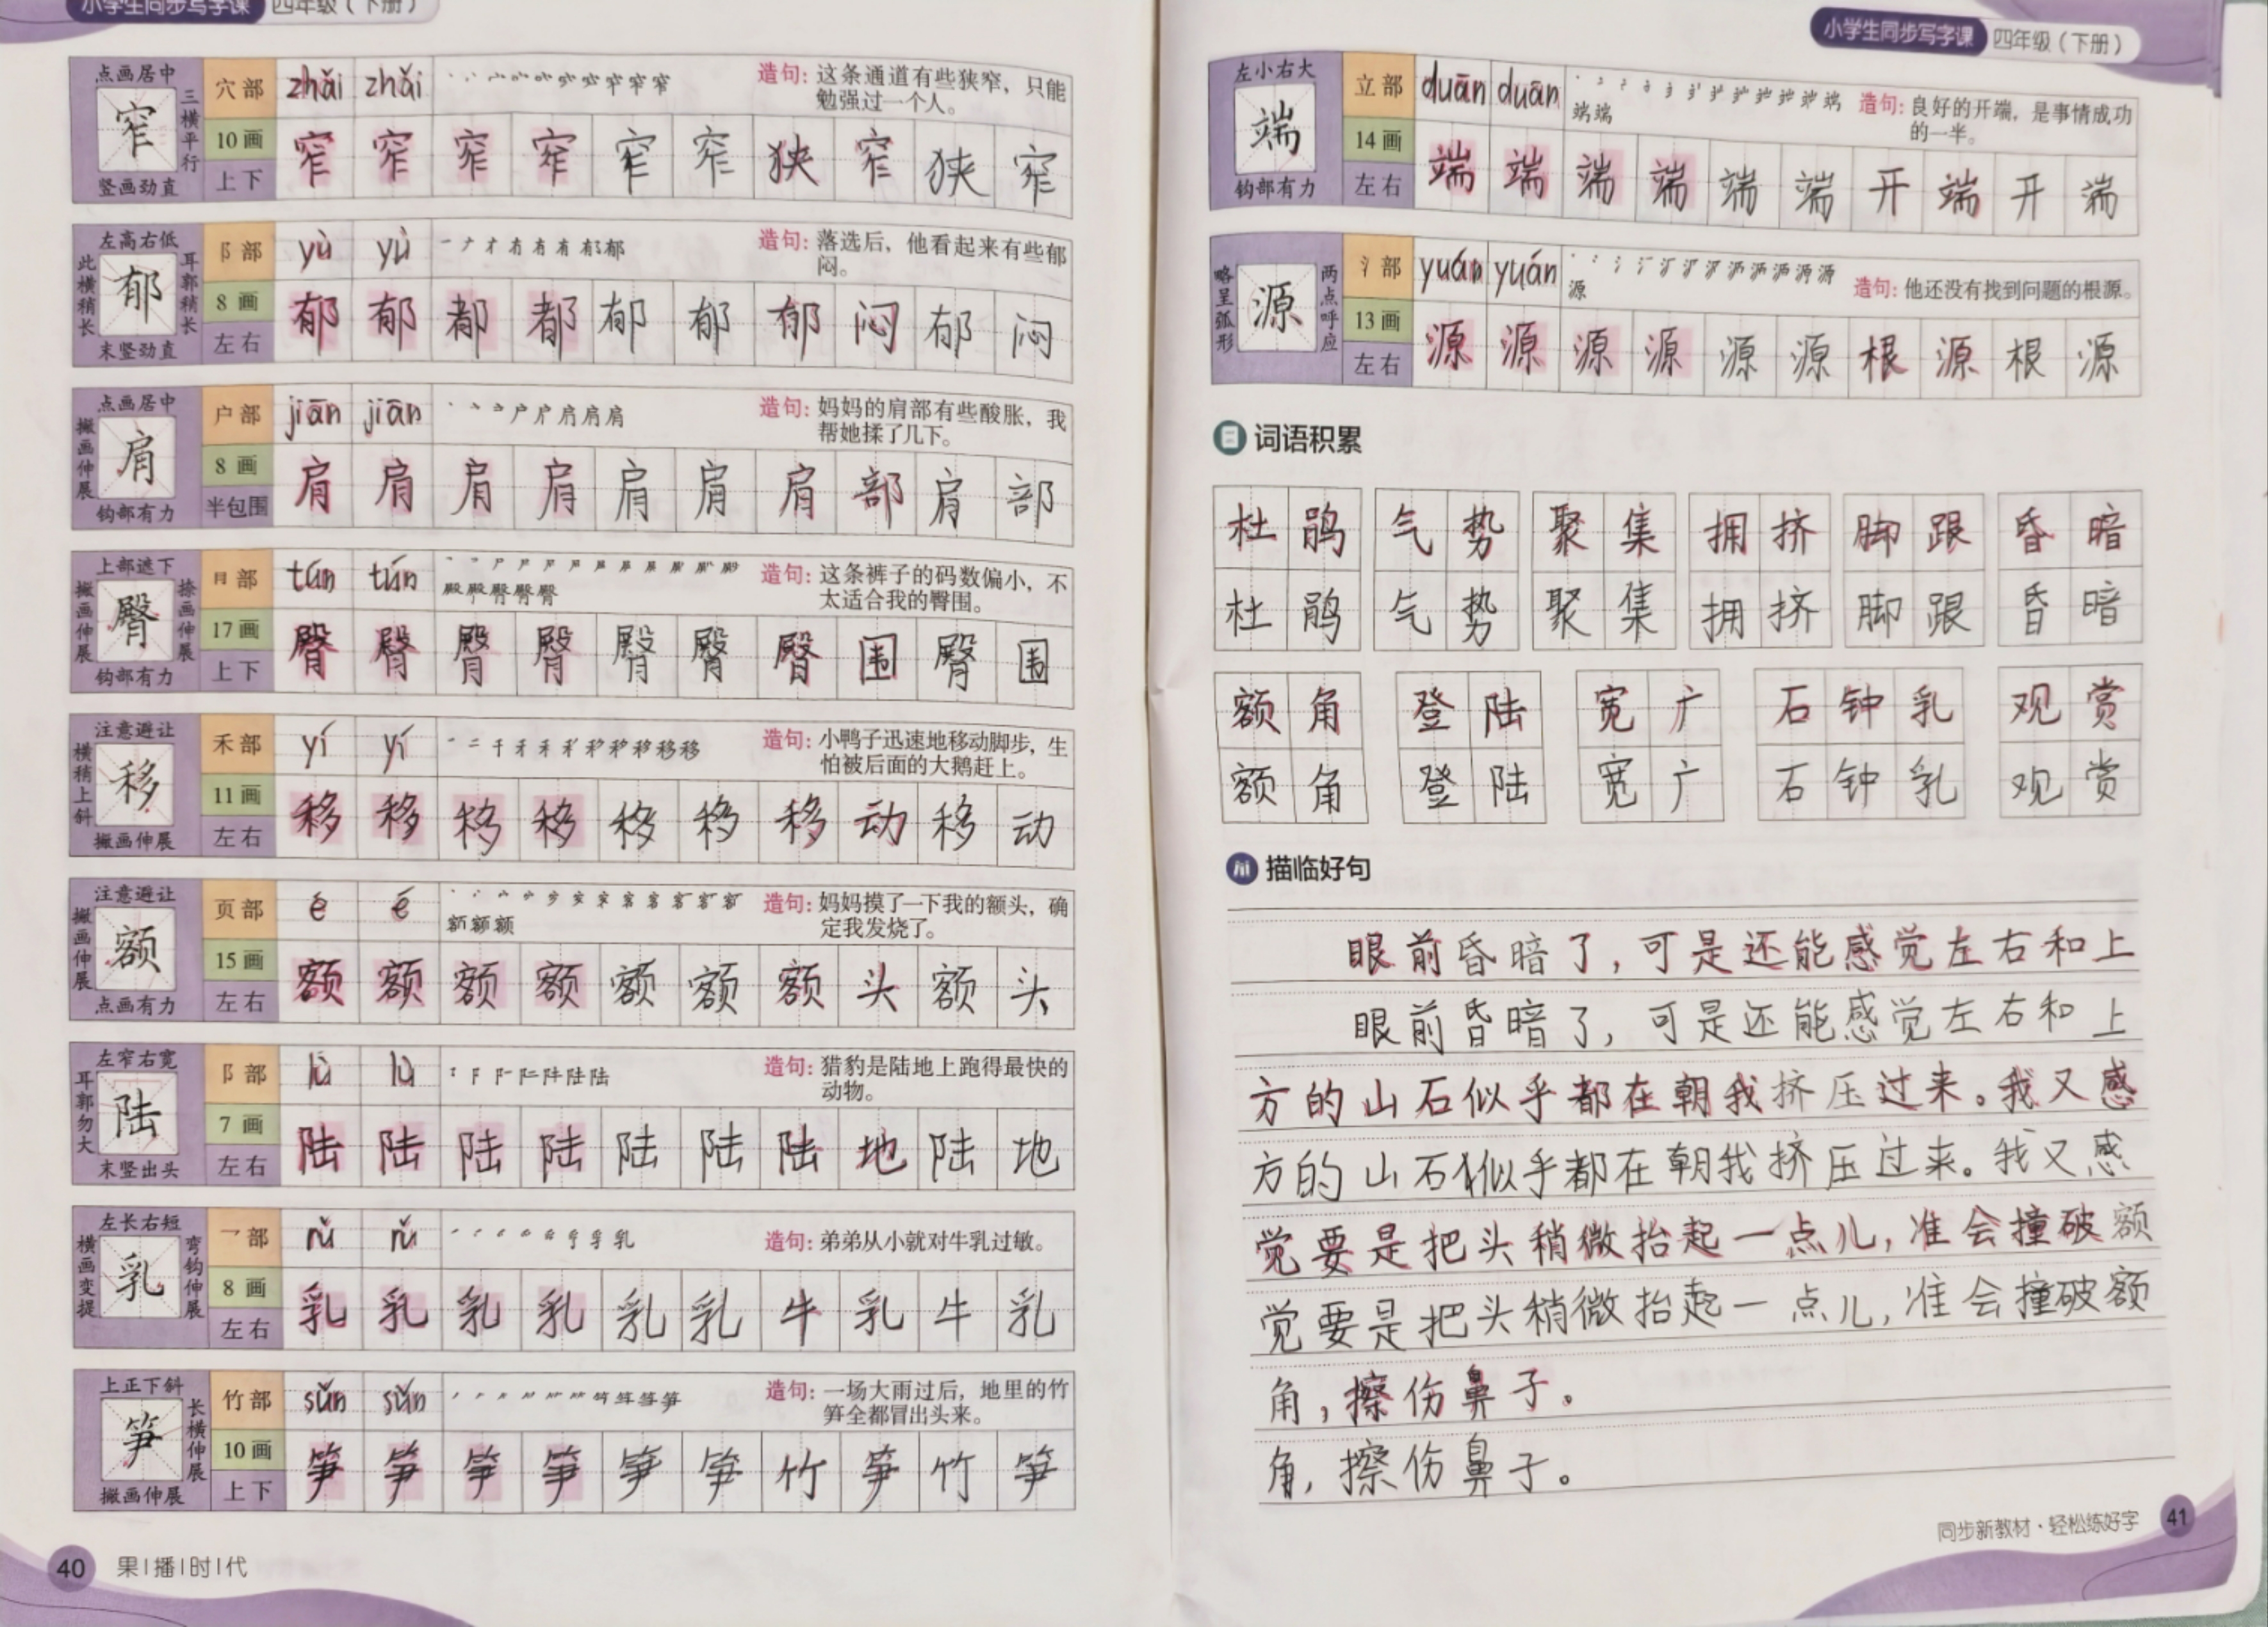 小学生同步写字课 四年级（下册）
点画居中
窄
三横平行
竖画劲直
穴部
10画
上下
zhǎi zhǎi
造句：这条通道有些狭窄，只能
勉强过一个人。
窄 窄 窄 窄 窄 窄 狭 窄 狭 窄
左高右低
此横稍长
郁
耳郭稍长
末竖劲直
阝部
8画
左右
yù yù
造句：落选后，他看起来有些郁
闷。
郁 郁 都 都 郁 郁 郁 闷 郁 闷
点画居中
撇画伸展
肩
钩部有力
户部
8画
半包围
jiān jiān
造句：妈妈的肩部有些酸胀，我
帮她揉了几下。
肩 肩 肩 肩 肩 肩 肩 部 肩 部
上部遮下
撇画伸展
臀
捺画伸展
钩部有力
月部
17画
上下
tún tún
造句：这条裤子的码数偏小，不
太适合我的臀围。
臀 臀 臀 臀 臀 臀 臀 围 臀 围
注意避让
横稍上斜
移
撇画伸展
禾部
11画
左右
yí yí
造句：小鸭子迅速地移动脚步，生
怕被后面的大鹅赶上。
移 移 移 移 移 移 移 动 移 动
注意避让
撇画伸展
额
点画有力
页部
15画
左右
é é
造句：妈妈摸了一下我的额头，确
定我发烧了。
额 额 额 额 额 额 额 头 额 头
左窄右宽
耳郭勿大
陆
末竖出头
阝部
7画
左右
lù lù
造句：猎豹是陆地上跑得最快的
动物。
陆 陆 陆 陆 陆 陆 陆 地 陆 地
左长右短
横画变提
乳
弯钩伸展
乛部
8画
左右
rǔ rǔ
造句：弟弟从小就对牛乳过敏。
乳 乳 乳 乳 乳 乳 牛 乳 牛 乳
上正下斜
笋
长横伸展
撇画伸展
竹部
10画
上下
sǔn sǔn
造句：一场大雨过后，地里的竹
笋全都冒出头来。
笋 笋 笋 笋 笋 笋 竹 笋 竹 笋
40 果|播|时|代
小学生同步写字课 四年级（下册）
左小右大
端
钩部有力
立部
14画
左右
duān duān
造句：良好的开端，是事情成功
的一半。
端 端 端 端 端 端 开 端 开 端
略呈弧形
源
两点呼应
氵部
13画
左右
yuán yuán
造句：他还没有找到问题的根源。
源 源 源 源 源 源 根 源 根 源
词语积累
杜鹃 气势 聚集 拥挤 脚跟 昏暗
杜鹃 气势 聚集 拥挤 脚跟 昏暗
额角 登陆 宽广 石钟乳 观赏
额角 登陆 宽广 石钟乳 观赏
描临好句
眼前昏暗了，可是还能感觉左右和上
眼前昏暗了，可是还能感觉左右和上
方的山石似乎都在朝我挤压过来。我又感
方的山石似乎都在朝我挤压过来。我又感
觉要是把头稍微抬起一点儿，准会撞破额
觉要是把头稍微抬起一点儿，准会撞破额
角，擦伤鼻子。
角，擦伤鼻子。
同步新教材·轻松练好字 41